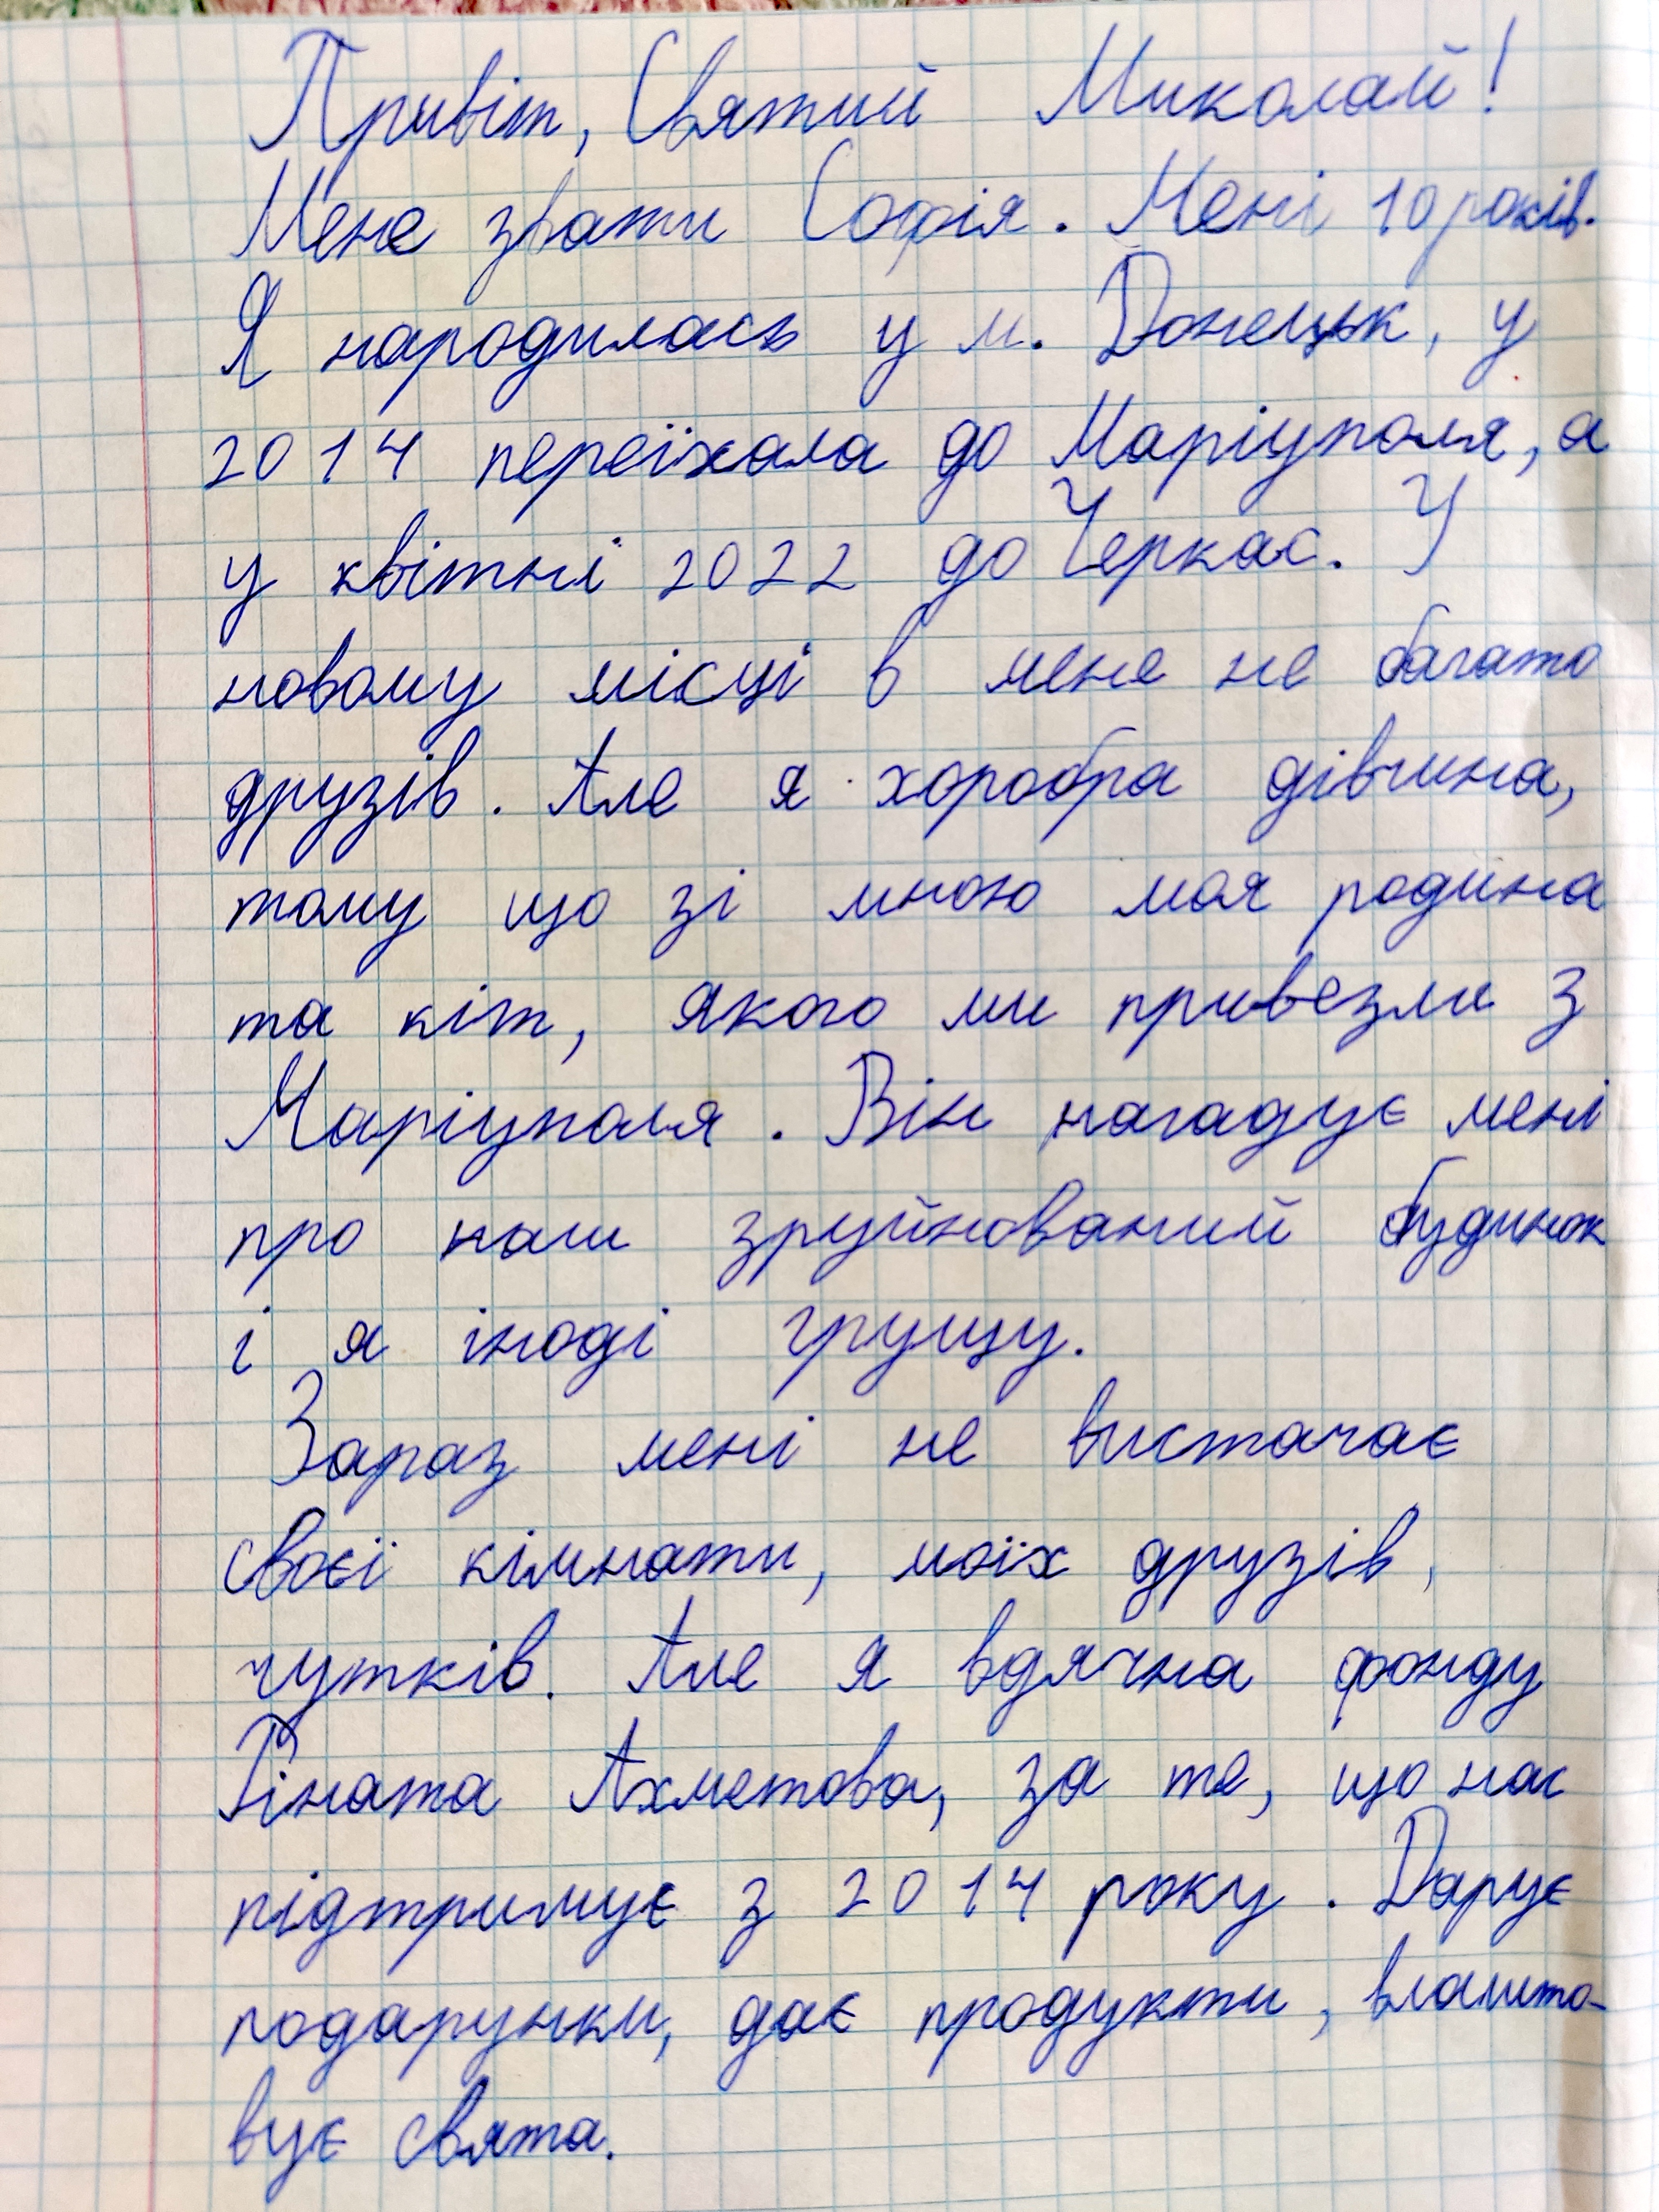 Привіт, Святий Миколай!
Мене звати Софія. Мені 10 років.
Я народилась у м. Донецьк, у
2014 переїхала до Маріуполя, а
у квітні 2022 до Черкас. У
новому місці в мене не багато
друзів. Але я хоробра дівчина,
тому що зі мною моя родина
та кіт, якого ми привезли з
Маріуполя. Він нагадує мені
про наш зруйнований будинок
і я іноді грущу.
Зараз мені не вистачає
своєї кімнати, моїх друзів,
гуртків. Але я вдячна фонду
Ріната Ахметова, за те, що нас
підтримує з 2014 року. Дарує
подарунки, дає продукти, влашто-
вує свята.